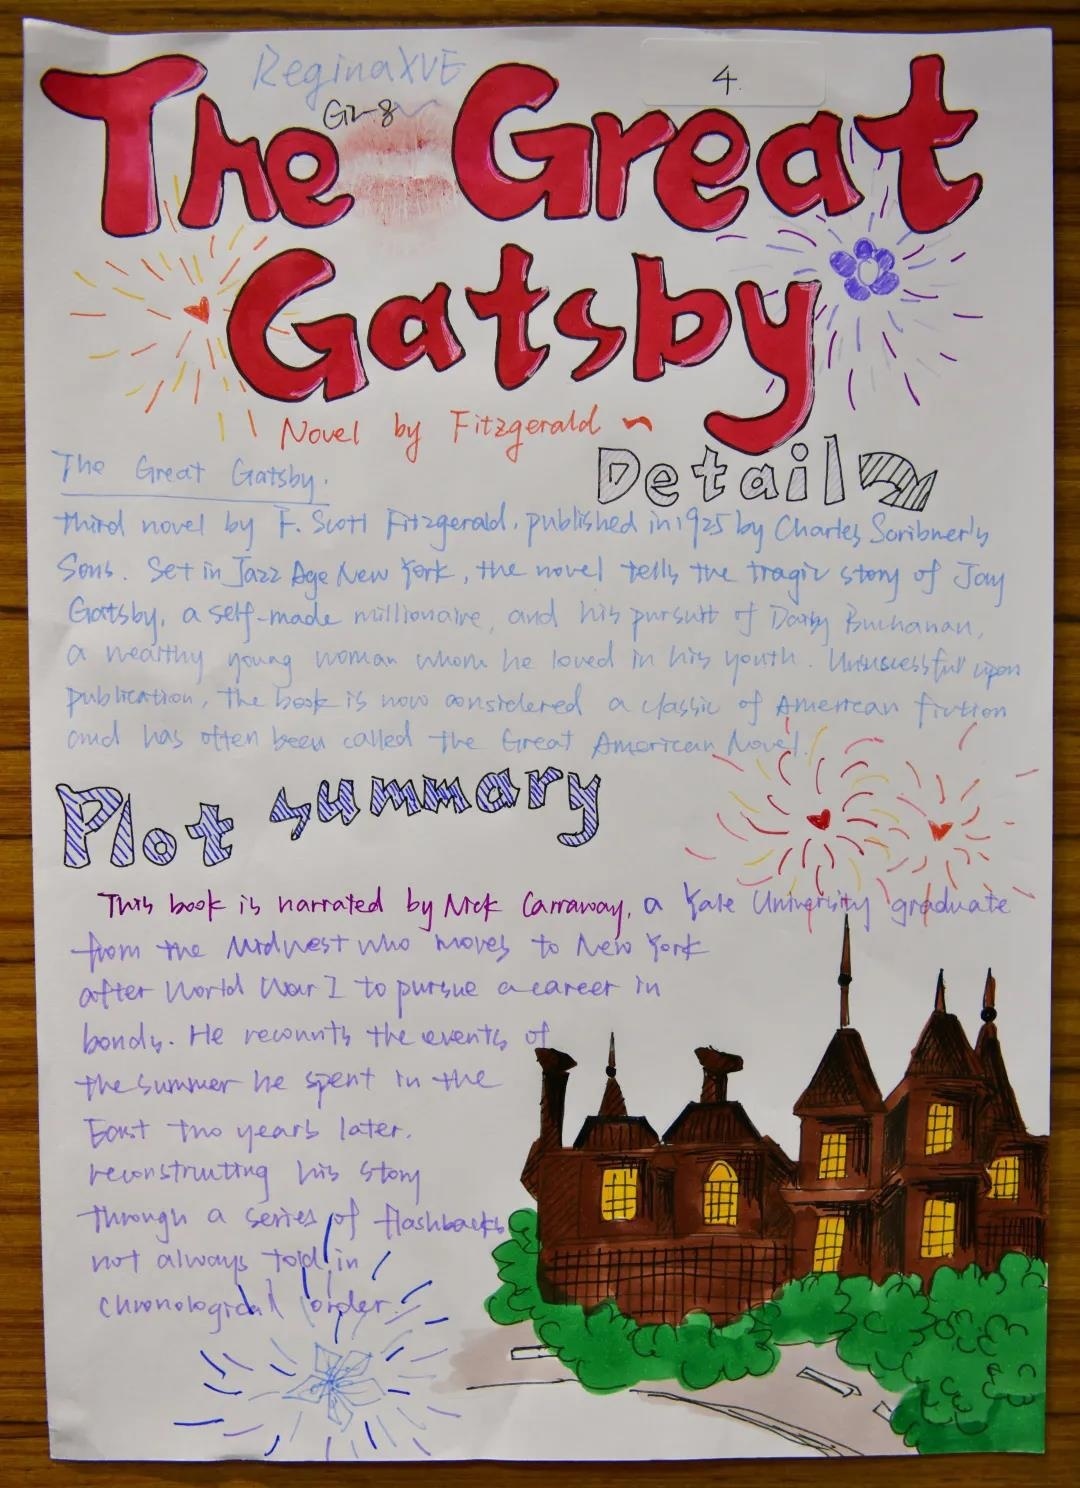 ReginaXUE
G2-8
4.
The Great
Gatsby
Novel by Fitzgerald
Detail
The Great Gatsby.
third novel by F. Scott Fitzgerald, published in 1925 by Charles Scribner's
Sons. Set in Jazz Age New York, the novel tells the tragic story of Jay
Gatsby, a self-made millionaire, and his pursuit of Daisy Buchanan,
a wealthy young woman whom he loved in his youth. Unsucessful upon
publication, the book is now considered a classic of American fiction
and has often been called the Great American Novel.
Plot summary
This book is narrated by Nick Carraway, a Yale University graduate
from the Midwest who moves to New York
after World War I to pursue a career in
bonds. He recounts the events of
the summer he spent in the
East two years later.
reconstructing his story
through a series of flashbacks
not always told in
chronological order.